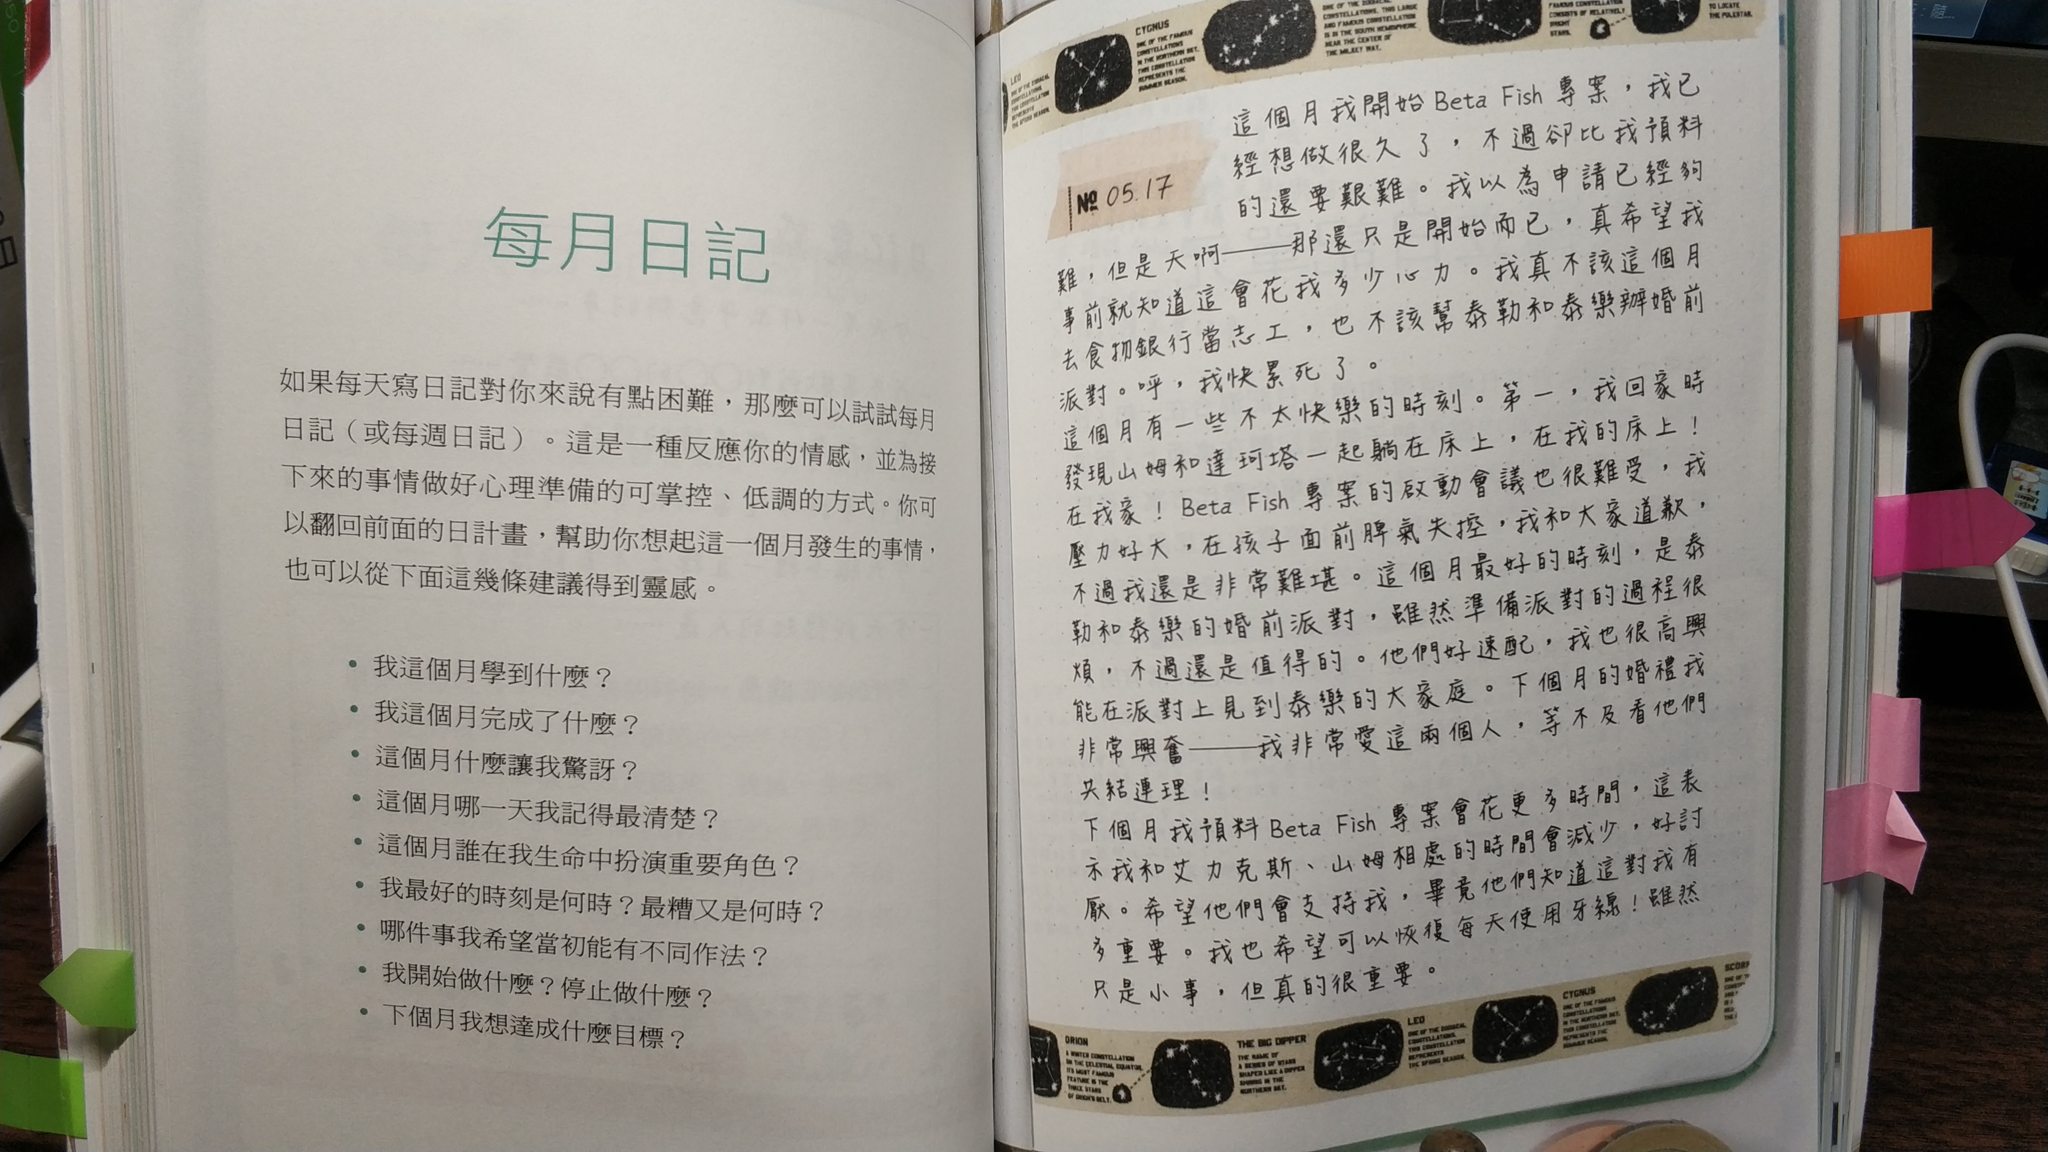 每月日記
如果每天寫日記對你來說有點困難，那麼可以試試每月
日記（或每週日記）。這是一種反應你的情感，並為接
下來的事情做好心理準備的可掌控、低調的方式。你可
以翻回前面的日計畫，幫助你想起這一個月發生的事情，
也可以從下面這幾條建議得到靈感。
• 我這個月學到什麼？
• 我這個月完成了什麼？
• 這個月什麼讓我驚訝？
• 這個月哪一天我記得最清楚？
• 這個月誰在我生命中扮演重要角色？
• 我最好的時刻是何時？最糟又是何時？
• 哪件事我希望當初能有不同作法？
• 我開始做什麼？停止做什麼？
• 下個月我想達成什麼目標？
LEO
CYGNUS
ONE OF THE FAMOUS
CONSTELLATIONS
IN THE NORTHERN SKY.
THIS CONSTELLATION
REPRESENTS THE
SUMMER SEASON.
CONSTELLATIONS, THIS LARGE
AND FAMOUS CONSTELLATION
IS IN THE SOUTH HEMISPHERE
NEAR THE CENTER OF
THE MILKEY WAY.
FAMOUS CONSTELLATION
CONSISTS OF RELATIVELY
BRIGHT
STARS.
TO LOCATE
THE POLESTAR.
№ 05.17
這個月我開始 Beta Fish 專案，我已
經想做很久了，不過卻比我預料
的還要艱難。我以為申請已經夠
難，但是天啊——那還只是開始而已，真希望我
事前就知道這會花我多少心力。我真不該這個月
去食物銀行當志工，也不該幫泰勒和泰樂辦婚前
派對。呼，我快累死了。
這個月有一些不太快樂的時刻。第一，我回家時
發現山姆和達珂塔一起躺在床上，在我的床上！
在我家！Beta Fish 專案的啟動會議也很難受，我
壓力好大，在孩子面前脾氣失控，我和大家道歉，
不過我還是非常難堪。這個月最好的時刻，是泰
勒和泰樂的婚前派對，雖然準備派對的過程很
煩，不過還是值得的。他們好速配，我也很高興
能在派對上見到泰樂的大家庭。下個月的婚禮我
非常興奮——我非常愛這兩個人，等不及看他們
共結連理！
下個月我預料 Beta Fish 專案會花更多時間，這表
示我和艾力克斯、山姆相處的時間會減少，好討
厭。希望他們會支持我，畢竟他們知道這對我有
多重要。我也希望可以恢復每天使用牙線！雖然
只是小事，但真的很重要。
ORION
A WINTER CONSTELLATION
ON THE CELESTIAL EQUATOR.
ITS MOST FAMOUS
FEATURE IS THE
THREE STARS
OF ORION'S BELT.
THE BIG DIPPER
THE NAME OF
A SERIES OF STARS
SHAPED LIKE A DIPPER
SHINING IN THE
NORTHERN SKY.
LEO
ONE OF THE ZODIACAL
CONSTELLATIONS.
THIS CONSTELLATION
REPRESENTS
THE SPRING SEASON.
CYGNUS
ONE OF THE FAMOUS
CONSTELLATIONS
IN THE NORTHERN SKY.
THIS CONSTELLATION
REPRESENTS THE
SUMMER SEASON.
SCORP